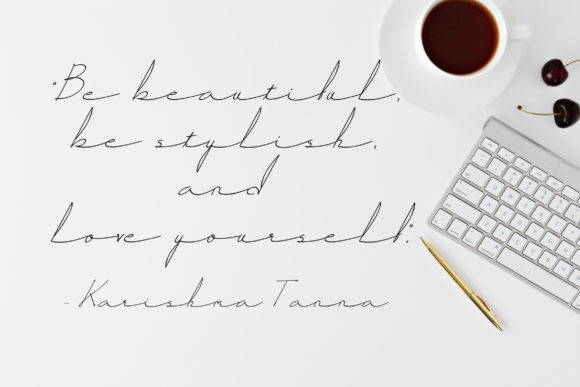 "Be beautiful,
be stylish,
and
love yourself."
- Karishma Tanna